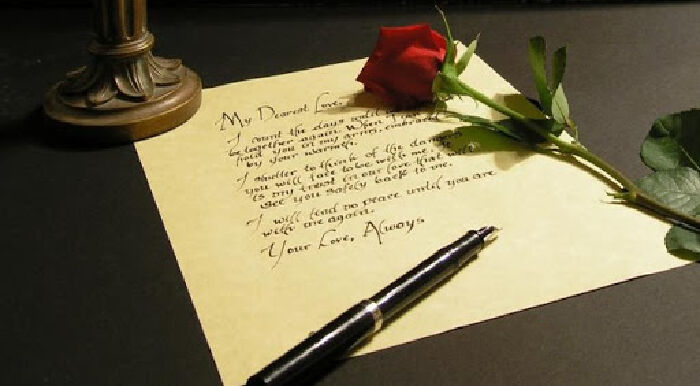 My Dearest Love,
I count the days until
be together again. When I
hold you in my arms, embraced
by your warmth.
I shudder to think of the
you will face to be with me.
is my trust in our love that will
see you safely back to me.
I will find no peace until you are
with me again.
Your Love, Always